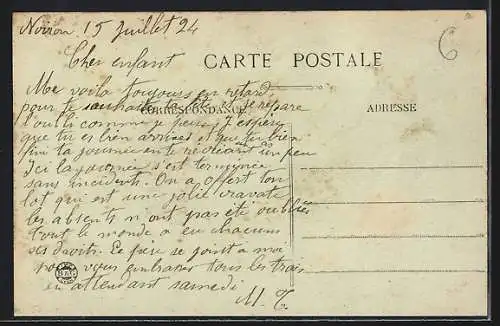 Noiron 15 Juillet 24
Cher enfant
CARTE POSTALE
CORRESPONDANCE
ADRESSE
Me voila toujours en retard
pour te souhaiter ta fête et je répare
l'oubli comme je peux. J'espère
que tu es bien arrivée et que tu as bien
fini ta journée en te un peu
Ici la journée s'est terminée
sans incidents. On a offert ton
lot qui est une jolie cravate
les absents n'ont pas été oubliés
tout le monde a eu chacun
ses droits. Le père se joint a moi
pour vous embrasser tous les trois
en attendant samedi
M. T